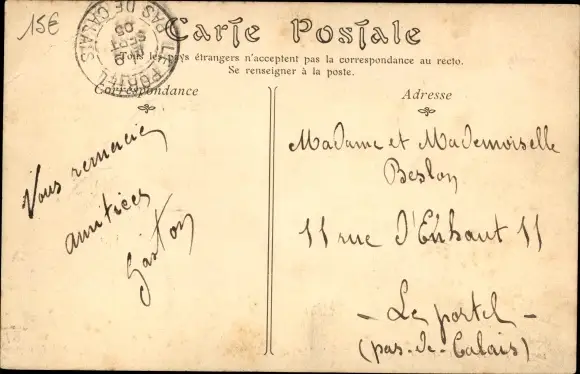 15€
Carte Postale
LE PORTEL
PAS DE CALAIS
Tous les pays étrangers n'acceptent pas la correspondance au recto.
Se renseigner à la poste.
Correspondance
Adresse
Vous remercie
amitiées
Gaston
Madame et Mademoiselle
Beslon
11 rue d'Enhaut 11
- Le portel -
(pas-de-Calais)